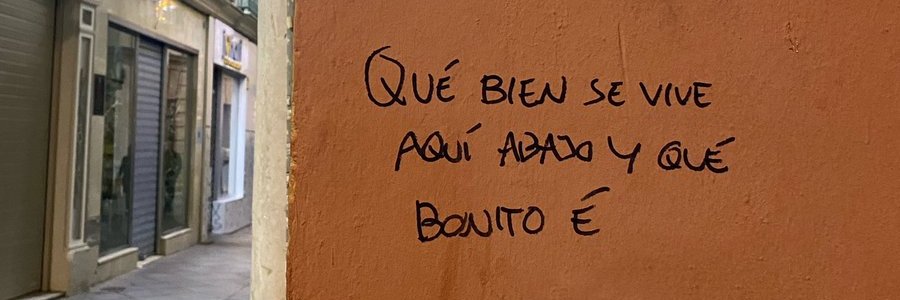 QUÉ BIEN SE VIVE
AQUÍ ABAJO Y QUÉ
BONITO É